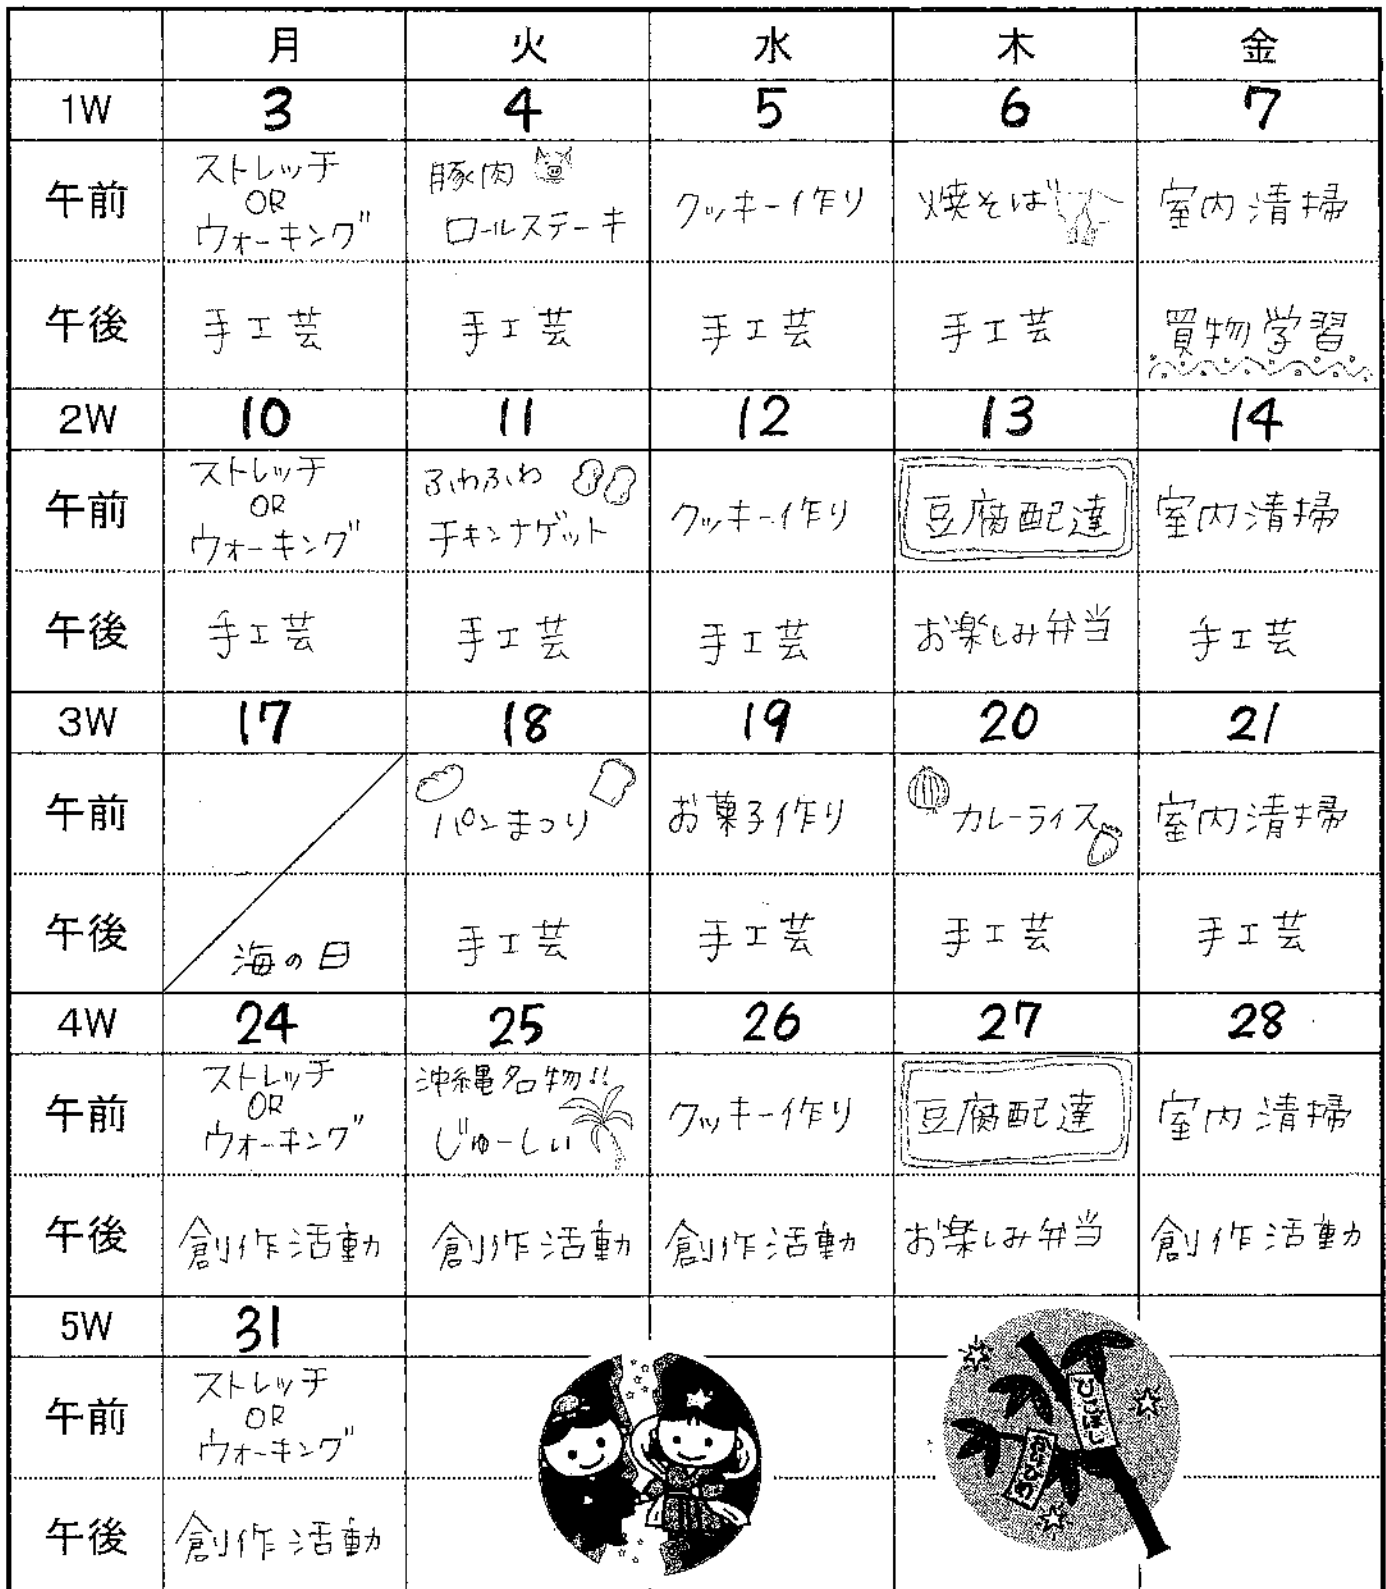 月 火 水 木 金
1W 3 4 5 6 7
午前 ストレッチ OR ウォーキング 豚肉 ロールステーキ クッキー作り 焼そば 室内清掃
午後 手工芸 手工芸 手工芸 手工芸 買物学習
2W 10 11 12 13 14
午前 ストレッチ OR ウォーキング ふわふわ チキンナゲット クッキー作り 豆腐配達 室内清掃
午後 手工芸 手工芸 手工芸 お楽しみ弁当 手工芸
3W 17 18 19 20 21
午前 パンまつり お菓子作り カレーライス 室内清掃
午後 海の日 手工芸 手工芸 手工芸 手工芸
4W 24 25 26 27 28
午前 ストレッチ OR ウォーキング 沖縄名物!! じゅーしい クッキー作り 豆腐配達 室内清掃
午後 創作活動 創作活動 創作活動 お楽しみ弁当 創作活動
5W 31
午前 ストレッチ OR ウォーキング
午後 創作活動
ひこぼし
おりひめ